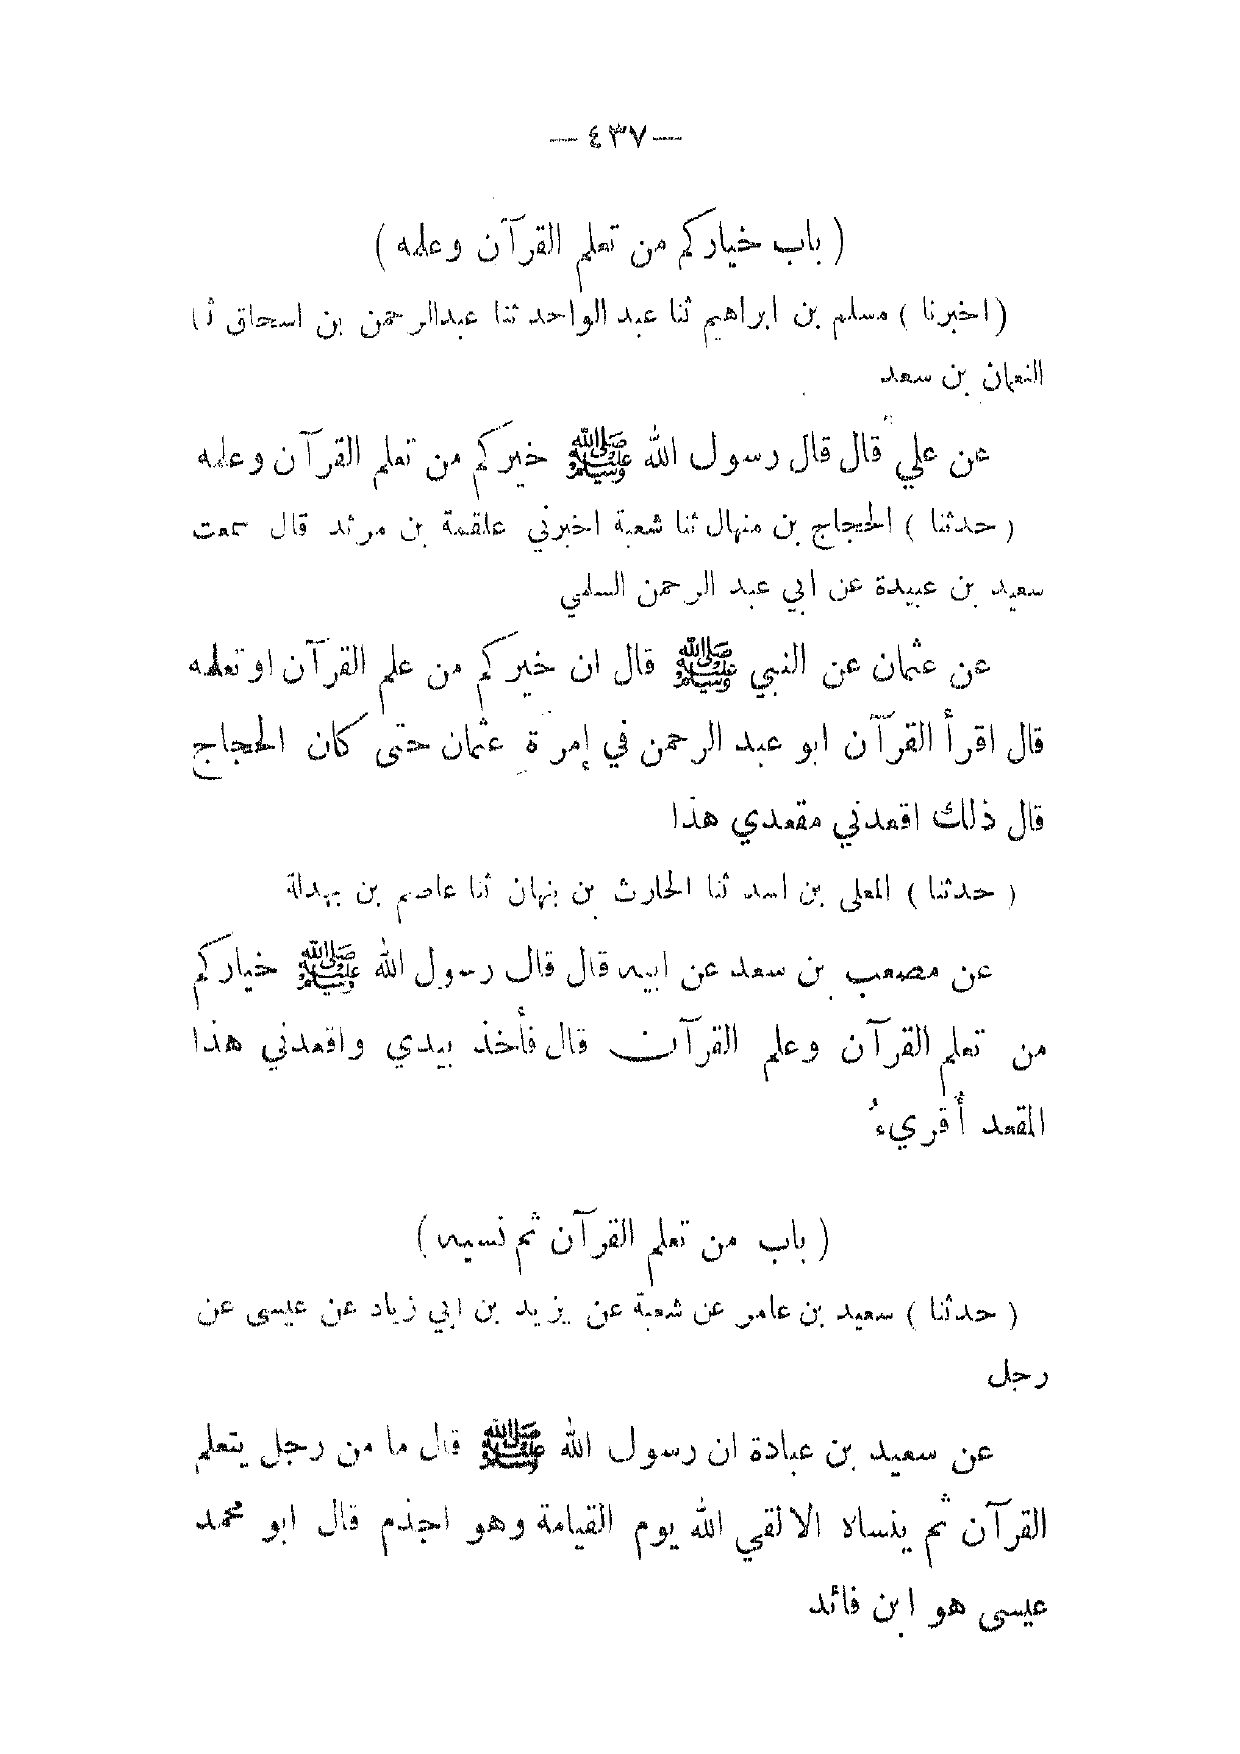 — ٤٣٧ —
( باب خياركم من تعلم القرآن وعلمه )
(اخبرنا ) مسلم بن ابراهيم ثنا عبد الواحد ثنا عبدالرحمن بن اسحاق ثنا
النعمان بن سعد
عن علي قال قال رسول الله ﷺ خيركم من تعلم القرآن وعلمه
( حدثنا ) الحجاج بن منهال ثنا شعبة اخبرني علقمة بن مرثد قال سمعت
سعيد بن عبيدة عن ابي عبد الرحمن السلمي
عن عثمان عن النبي ﷺ قال ان خيركم من علم القرآن او تعلمه
قال اقرأ القرآن ابو عبد الرحمن في إمرة عثمان حتى كان الحجاج
قال ذلك اقعدني مقعدي هذا
( حدثنا ) المعلى بن اسد ثنا الحارث بن نبهان ثنا عاصم بن بهدلة
عن مصعب بن سعد عن ابيه قال قال رسول الله ﷺ خياركم
من تعلم القرآن وعلم القرآن قال فأخذ بيدي واقعدني هذا
المقعد أقريءُ
( باب من تعلم القرآن ثم نسيه )
( حدثنا ) سعيد بن عامر عن شعبة عن يزيد بن ابي زياد عن عيسى عن
رجل
عن سعيد بن عبادة ان رسول الله ﷺ قال ما من رجل يتعلم
القرآن ثم ينساه الا لقي الله يوم القيامة وهو اجذم قال ابو محمد
عيسى هو ابن فائد